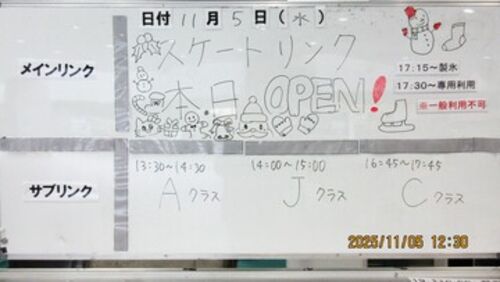 日付 11月 5日(水)
メインリンク
スケートリンク
本日 OPEN!
17:15〜製氷
17:30〜専用利用
※一般利用不可
サブリンク
13:30〜14:30
Aクラス
14:00〜15:00
Jクラス
16:45〜17:45
Cクラス
2025/11/05 12:30